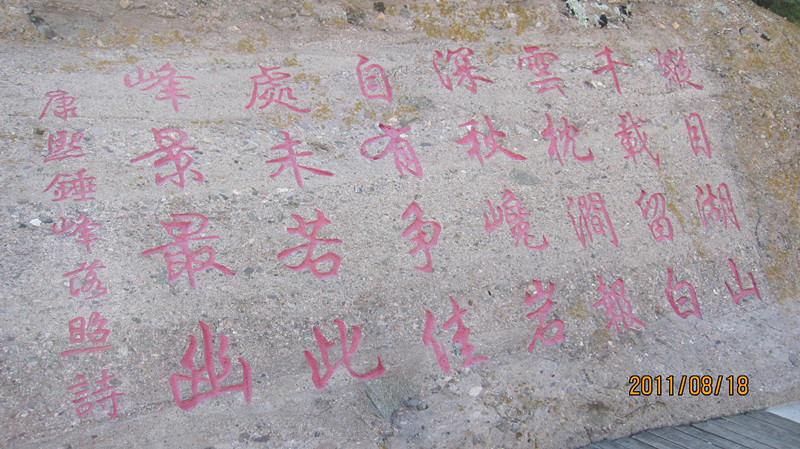 縱目湖山
千載留白
雲枕澗報
深秋巉岩
自有争佳
處未若此
峰景最幽
康熙錘峰落照詩
2011/08/18